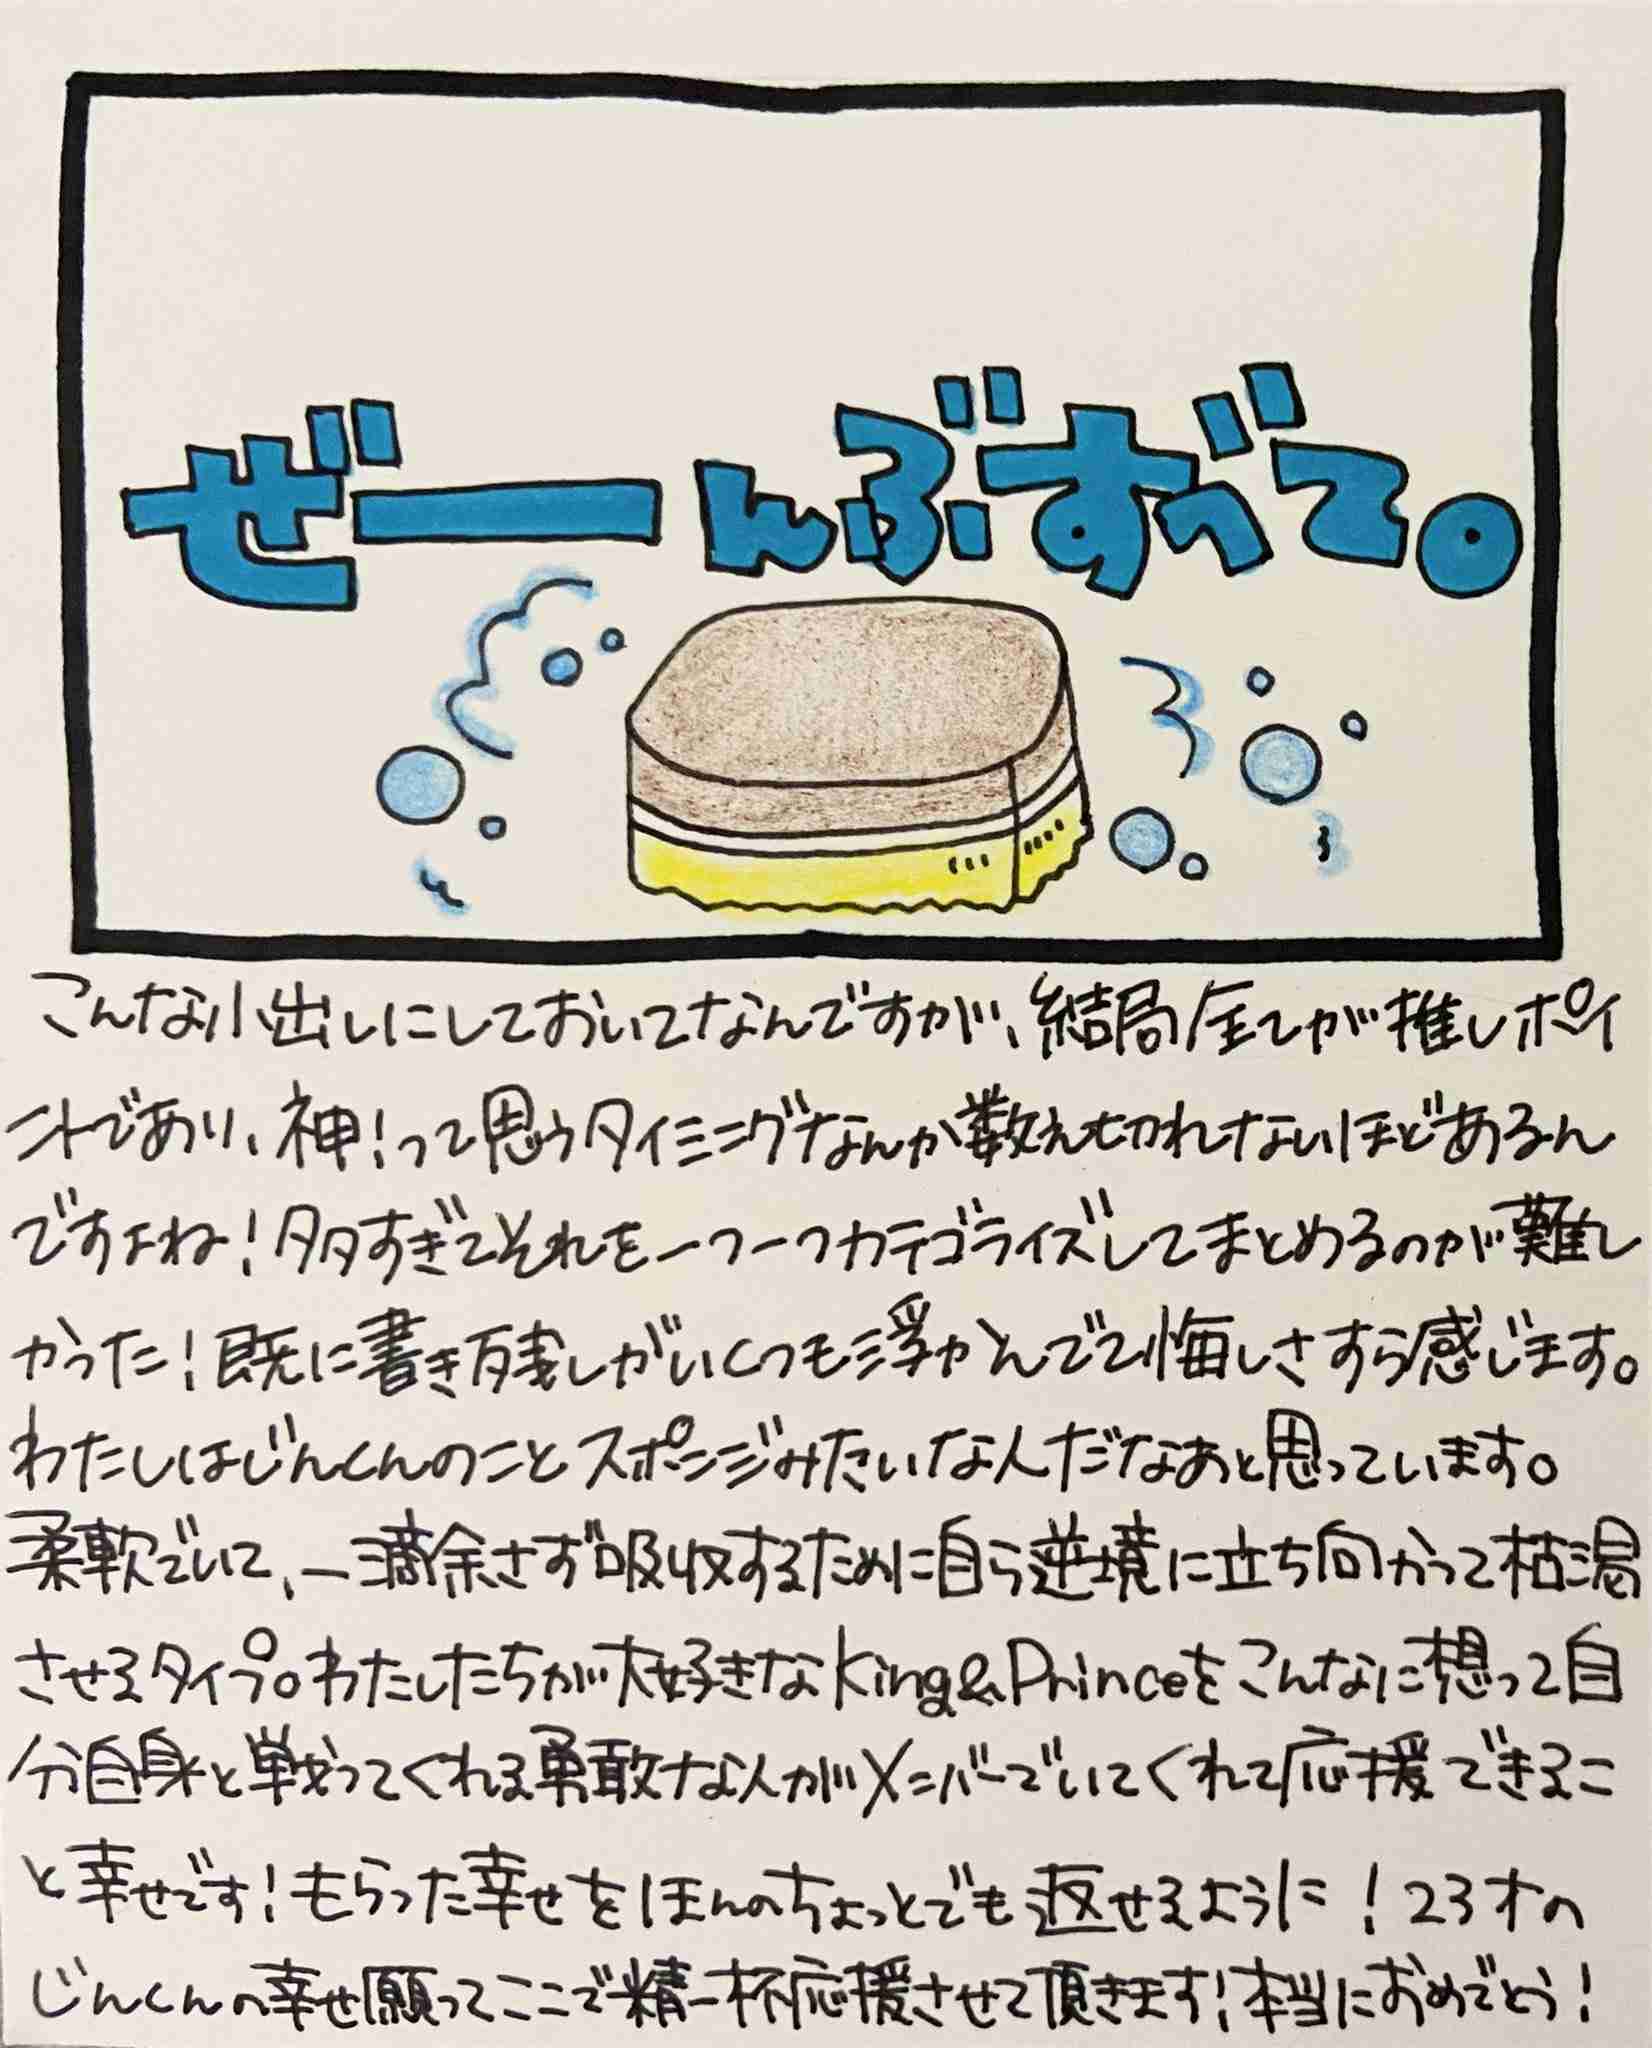 ぜーんぶすべて。
こんな小出しにしておいてなんですが、結局全てが推しポイ
ントであり、神！って思うタイミングなんか数え切れないほどあるん
ですよね！多すぎてそれを一つ一つカテゴライズしてまとめるのが難し
かった！既に書き残しがいくつも浮かんでて悔しさすら感じます。
わたしはじんくんのことスポンジみたいな人だなあと思っています。
柔軟でいて、一滴余さず吸収するために自ら逆境に立ち向かって枯渇
させるタイプ。わたしたちが大好きなKing&Princeをこんなに想って自
分自身と戦ってくれる勇敢な人がメンバーでいてくれて応援できるこ
と幸せです！もらった幸せをほんのちょっとでも返せるように！23才の
じんくんの幸せ願ってここで精一杯応援させて頂きます！本当におめでとう！